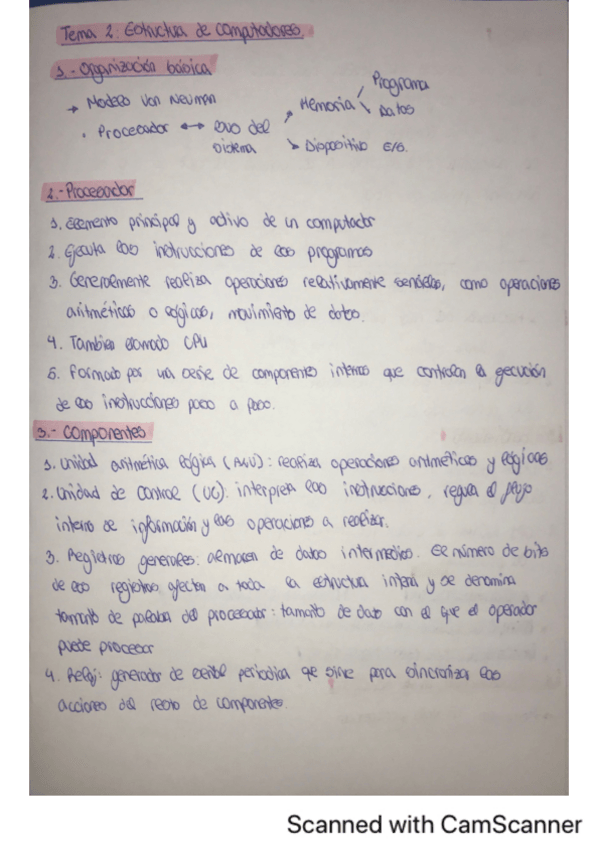 Tema 2: Estructura de computadores.
1.- Organización básica
→ Modelo Von Neuman
Programa
Memoria
Datos
• Procesador ↔ bus del
sistema
Dispositivo E/S.
2.- Procesador
1. Elemento principal y activo de un computador
2. Ejecuta las instrucciones de los programas
3. Generalmente realiza operaciones relativamente sencillas, como operaciones
aritméticas o lógicas, movimiento de datos.
4. Tambien llamado CPU
5. Formado por una serie de componentes internos que controlan la ejecución
de las instrucciones paso a paso.
3.- Componentes
1. Unidad aritmética lógica (ALU): realiza operaciones aritméticas y lógicas
2. Unidad de Control (UC): interpreta las instrucciones, regula el flujo
interno de información y las operaciones a realizar.
3. Registros generales: almacen de datos intermedios. El número de bits
de los registros afectan a toda la estructura interna y se denomina
tamaño de palabra del procesador: tamaño de dato con el que el operador
puede procesar
4. Reloj: generador de señal periodica que sirve para sincronizar las
acciones del resto de componentes.
Scanned with CamScanner